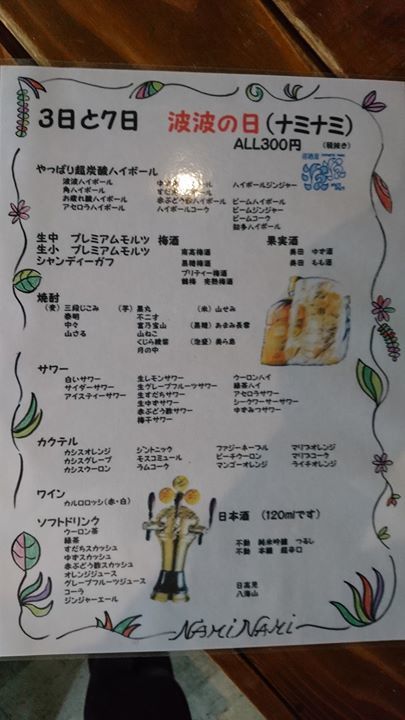 3日と7日 波波の日(ナミナミ)
ALL300円 (税抜き)
やっぱり超炭酸ハイボール
波波ハイボール ハイボールジンジャー
角ハイボール すだちハイボール
お疲れ酸ハイボール 赤ぶどう酢ハイボール ビームハイボール
アセロラハイボール ハイボールコーク ビームジンジャー
ビームコーク
知多ハイボール
生中 プレミアムモルツ 梅酒 果実酒
生小 プレミアムモルツ 南高梅酒 奥田 ゆず酒
シャンディーガフ 黒糖梅酒 奥田 もも酒
プリティー梅酒
鶴梅 完熟梅酒
焼酎
(麦) 三段じこみ (芋) 黒丸 (米) 山せみ
壱明 不二才
中々 富乃宝山 (黒糖) あまみ長雲
山さる 山ねこ
くじら綾紫 (泡盛) 美ら島
月の中
サワー
白いサワー 生レモンサワー ウーロンハイ
サイダーサワー 生グレープフルーツサワー 緑茶ハイ
アイスティーサワー 生すだちサワー アセロラサワー
生ゆずサワー シークワーサーサワー
赤ぶどう酢サワー ゆずみつサワー
梅干サワー
カクテル
カシスオレンジ ジントニック ファジーネーブル マリブオレンジ
カシスグレープ モスコミュール ピーチウーロン マリブコーク
カシスウーロン ラムコーク マンゴーオレンジ ライチオレンジ
ワイン
カルロロッシ(赤・白)
ソフトドリンク 日本酒 (120mlです)
ウーロン茶
緑茶 不動 純米吟醸 つるし
すだちスカッシュ 不動 本醸 超辛口
ゆずスカッシュ
赤ぶどう酢スカッシュ
オレンジジュース
グレープフルーツジュース 日高見
コーラ 八海山
ジンジャーエール
NAMiNAMi